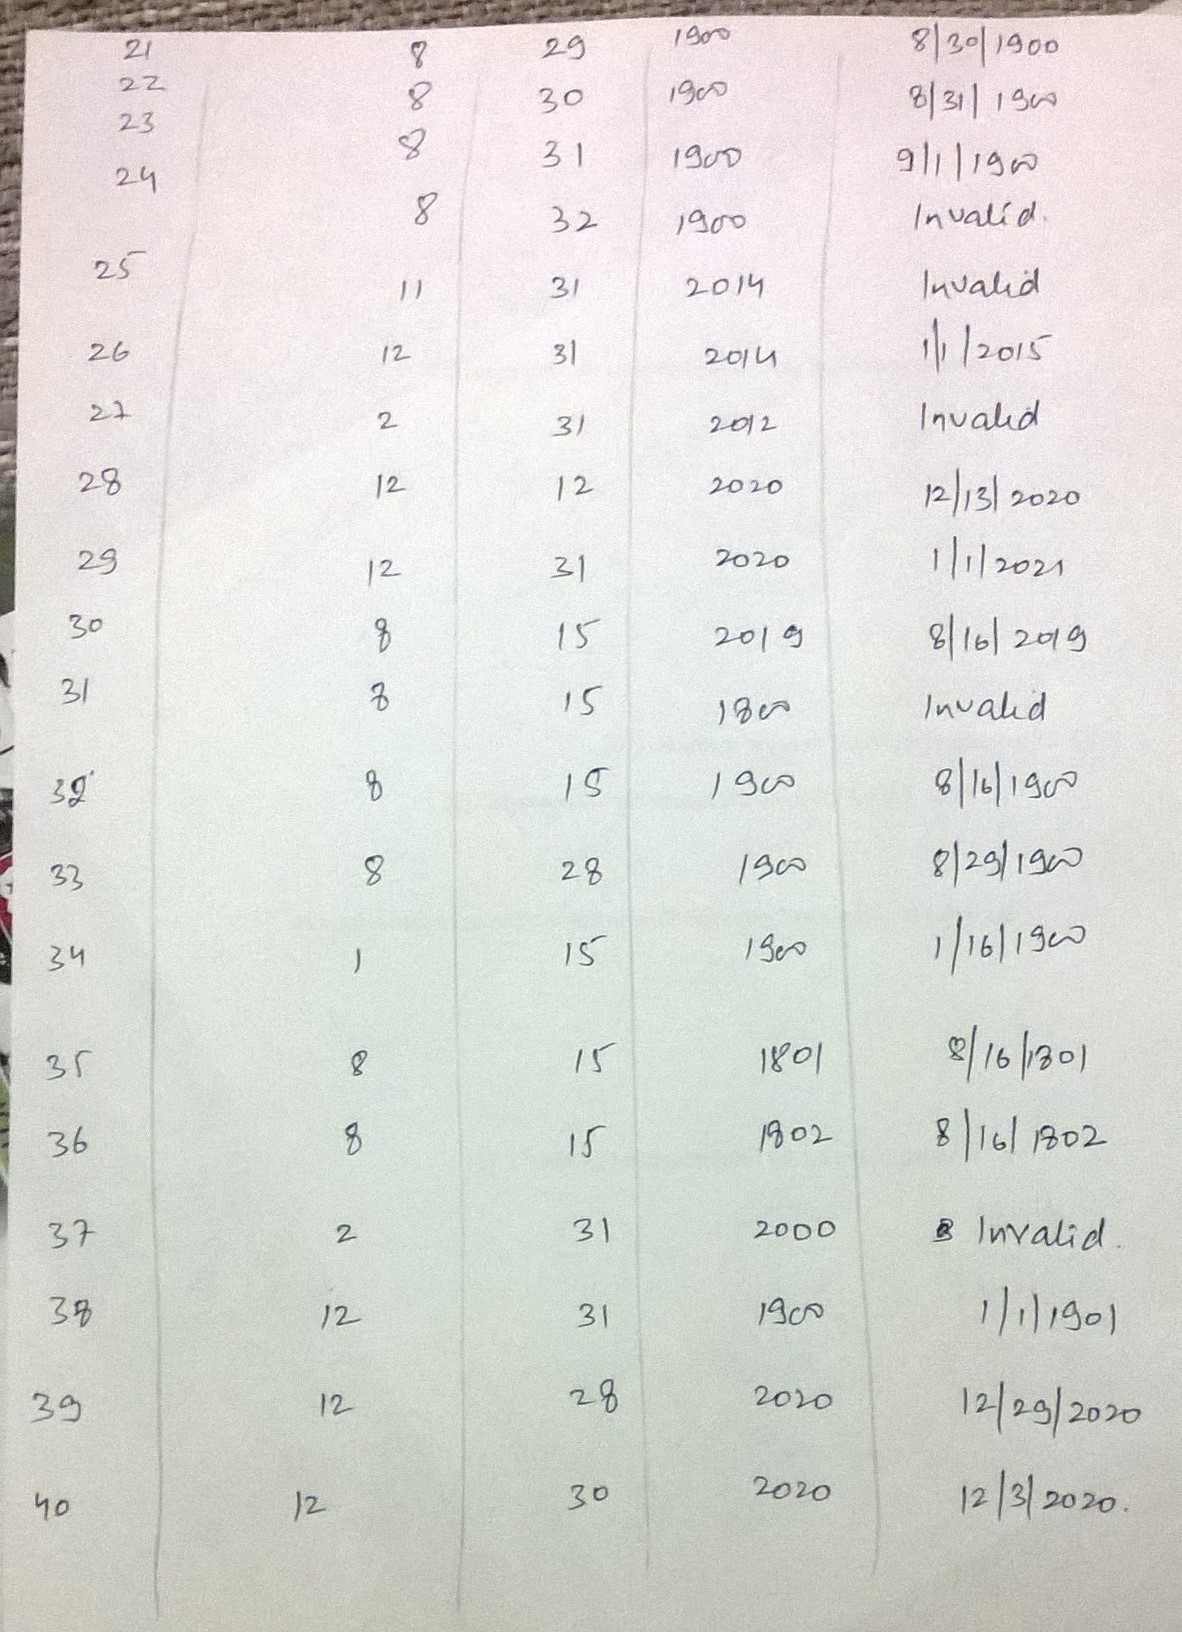 21 8 29 1900 8/30/1900
22 8 30 1900 8/31/1900
23 8 31 1900 9/1/1900
24 8 32 1900 Invalid.
25 11 31 2014 Invalid
26 12 31 2014 1/1/2015
27 2 31 2012 Invalid
28 12 12 2020 12/13/2020
29 12 31 2020 1/1/2021
30 8 15 2019 8/16/2019
31 8 15 1800 Invalid
32 8 15 1900 8/16/1900
33 8 28 1900 8/29/1900
34 1 15 1900 1/16/1900
35 8 15 1801 8/16/1801
36 8 15 1802 8/16/1802
37 2 31 2000 Invalid.
38 12 31 1900 1/1/1901
39 12 28 2020 12/29/2020
40 12 30 2020 12/3/2020.